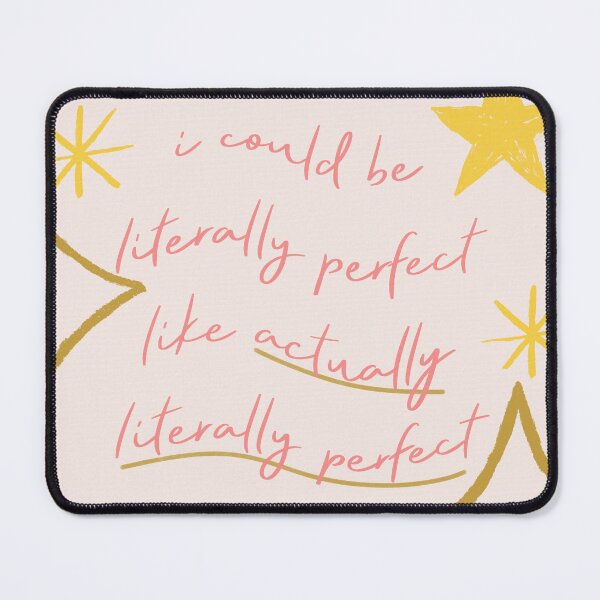 i could be
literally perfect
like actually
literally perfect